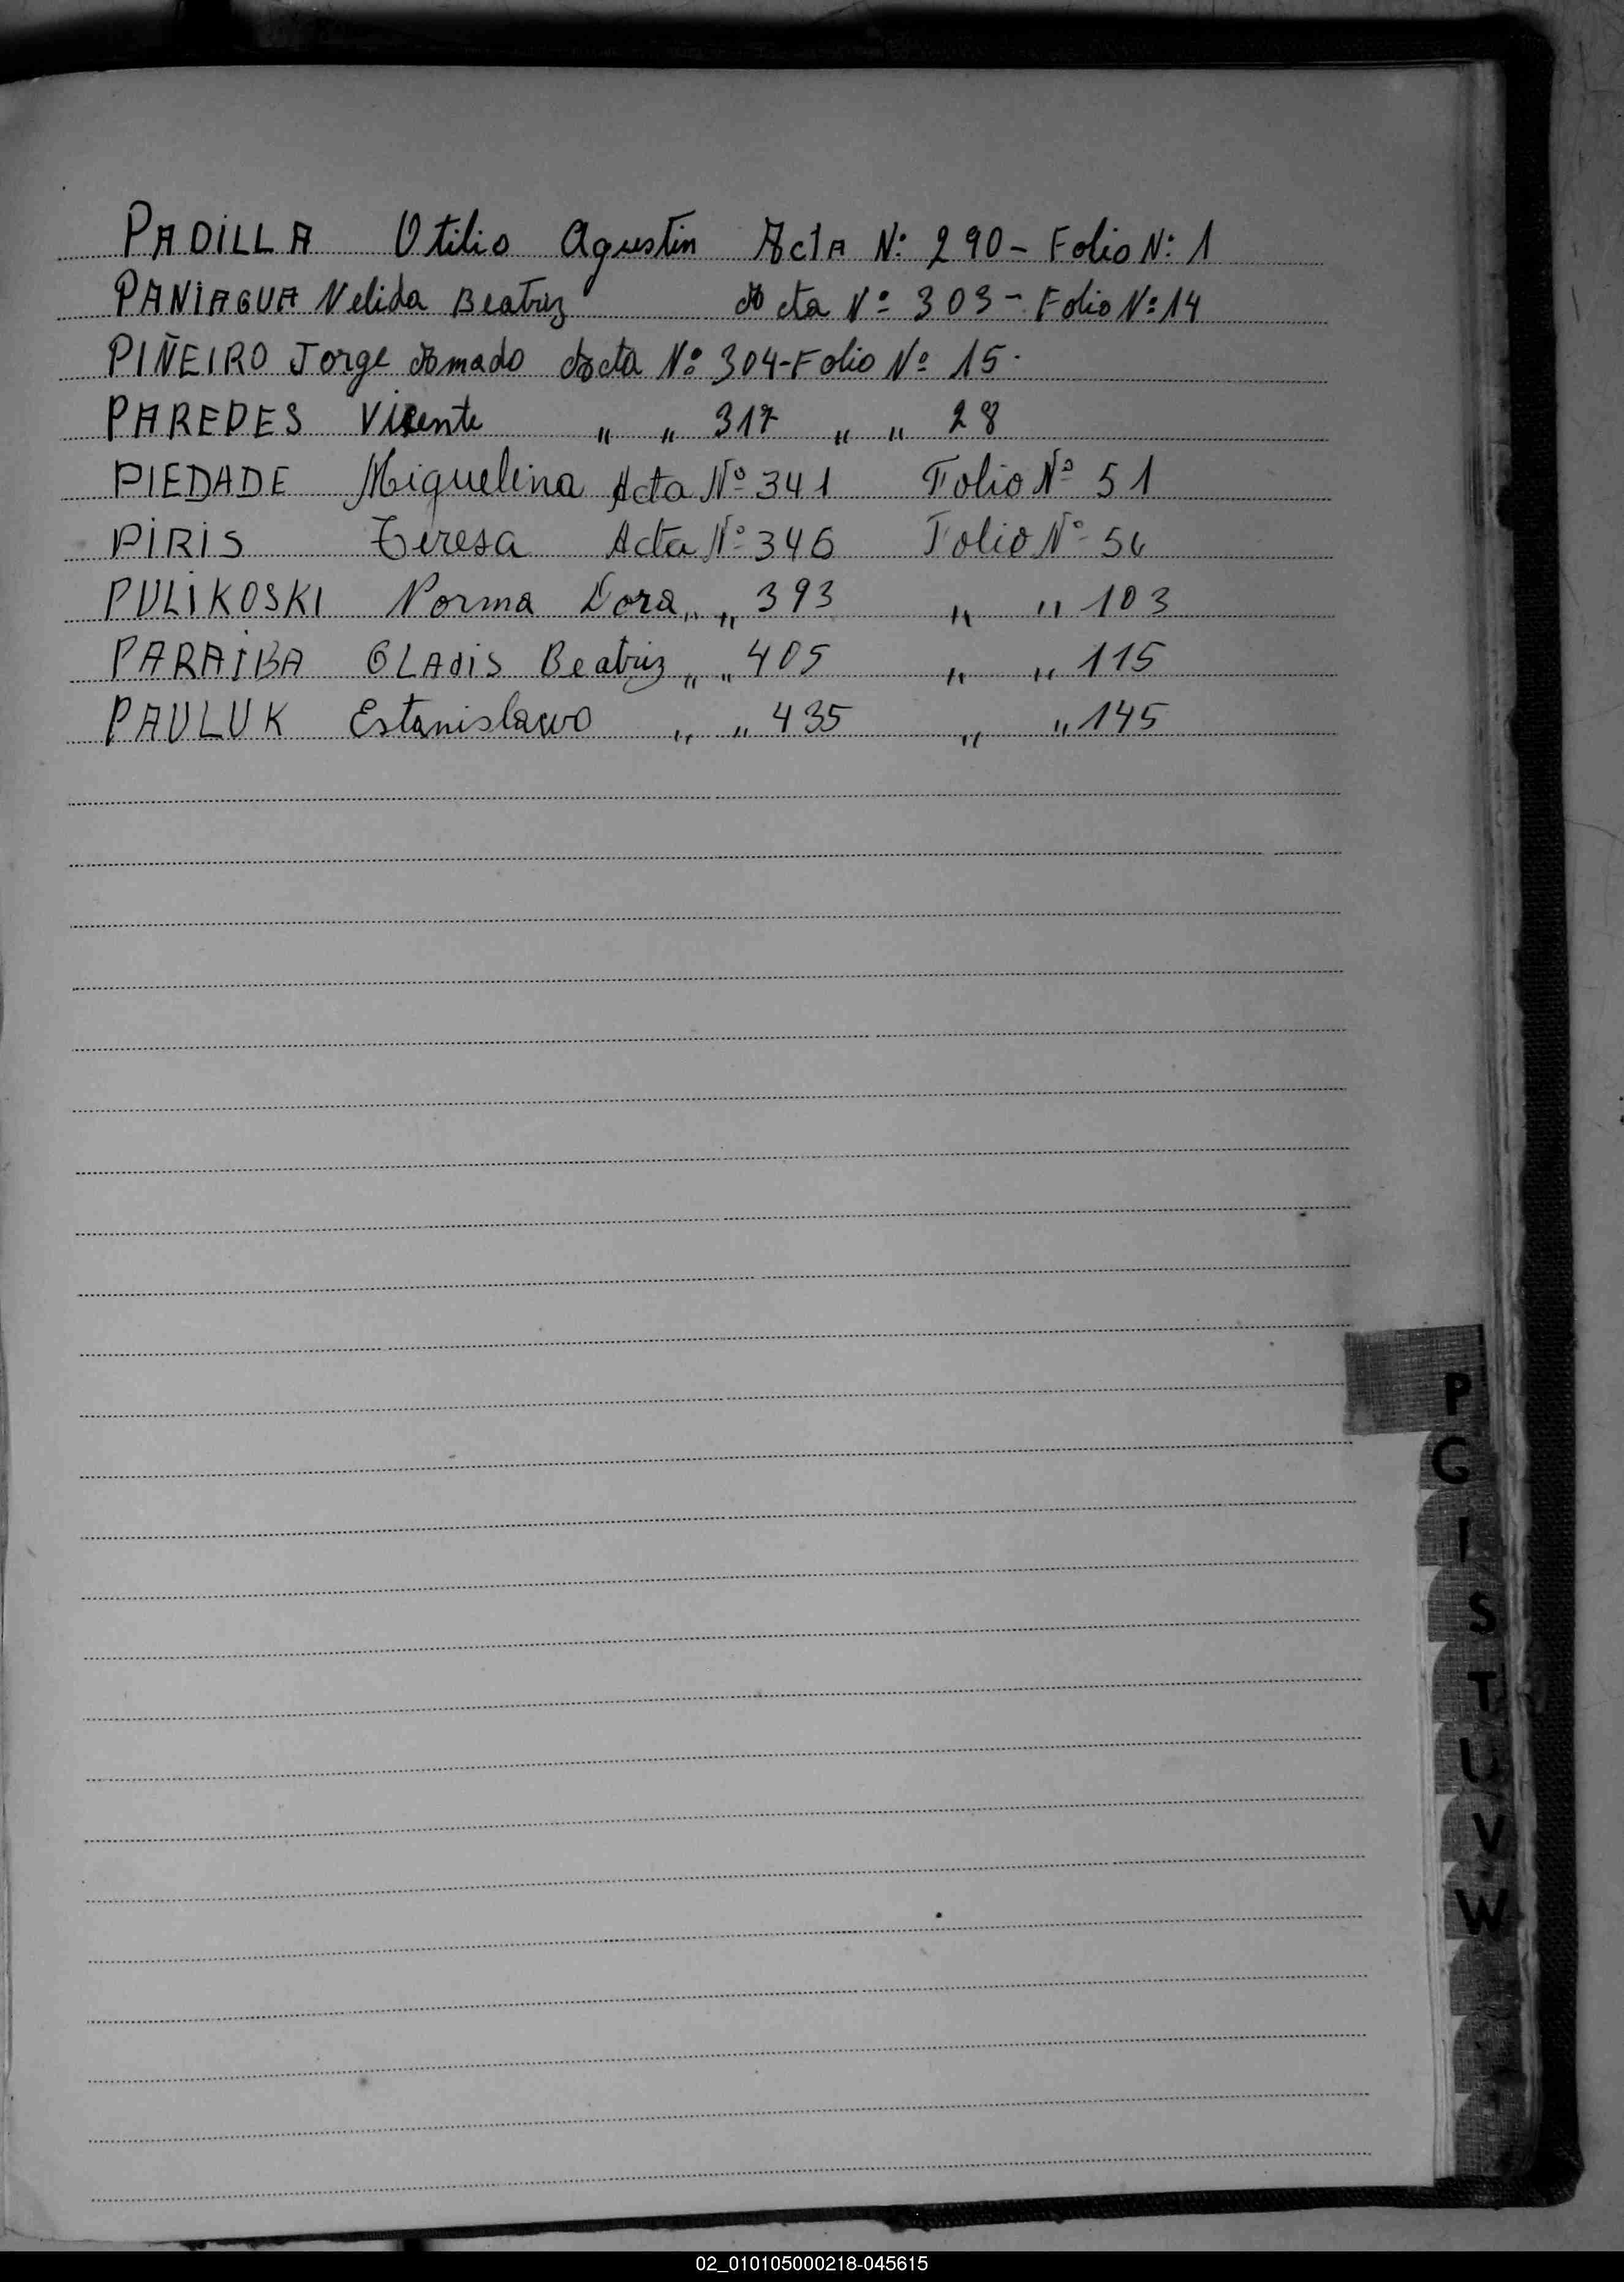 PADILLA Otilio Agustin Acta Nº 290 - Folio Nº 1
PANIAGUA Nelida Beatriz Acta Nº 303 - Folio Nº 14
PIÑEIRO Jorge Amado Acta Nº 304 - Folio Nº 15.
PAREDES Vicente " " 317 " " 28
PIEDADE Miquelina Acta Nº 341 Folio Nº 51
PIRIS Teresa Acta Nº 346 Folio Nº 56
PULIKOSKI Norma Dora " " 393 " " 103
PARAIBA GLADIS Beatriz " " 405 " " 115
PAULUK Estanislawo " " 435 " " 145
P
G
I
S
T
U
V
W
02_010105000218-045615